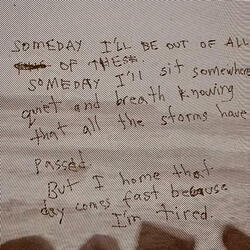 SOMEDAY I'LL BE OUT OF ALL
OF THESE.
SOMEDAY I'll sit somewhere
quiet and breath knowing
that all the storms have
passed.
But I home that
day comes fast because
I'm tired.